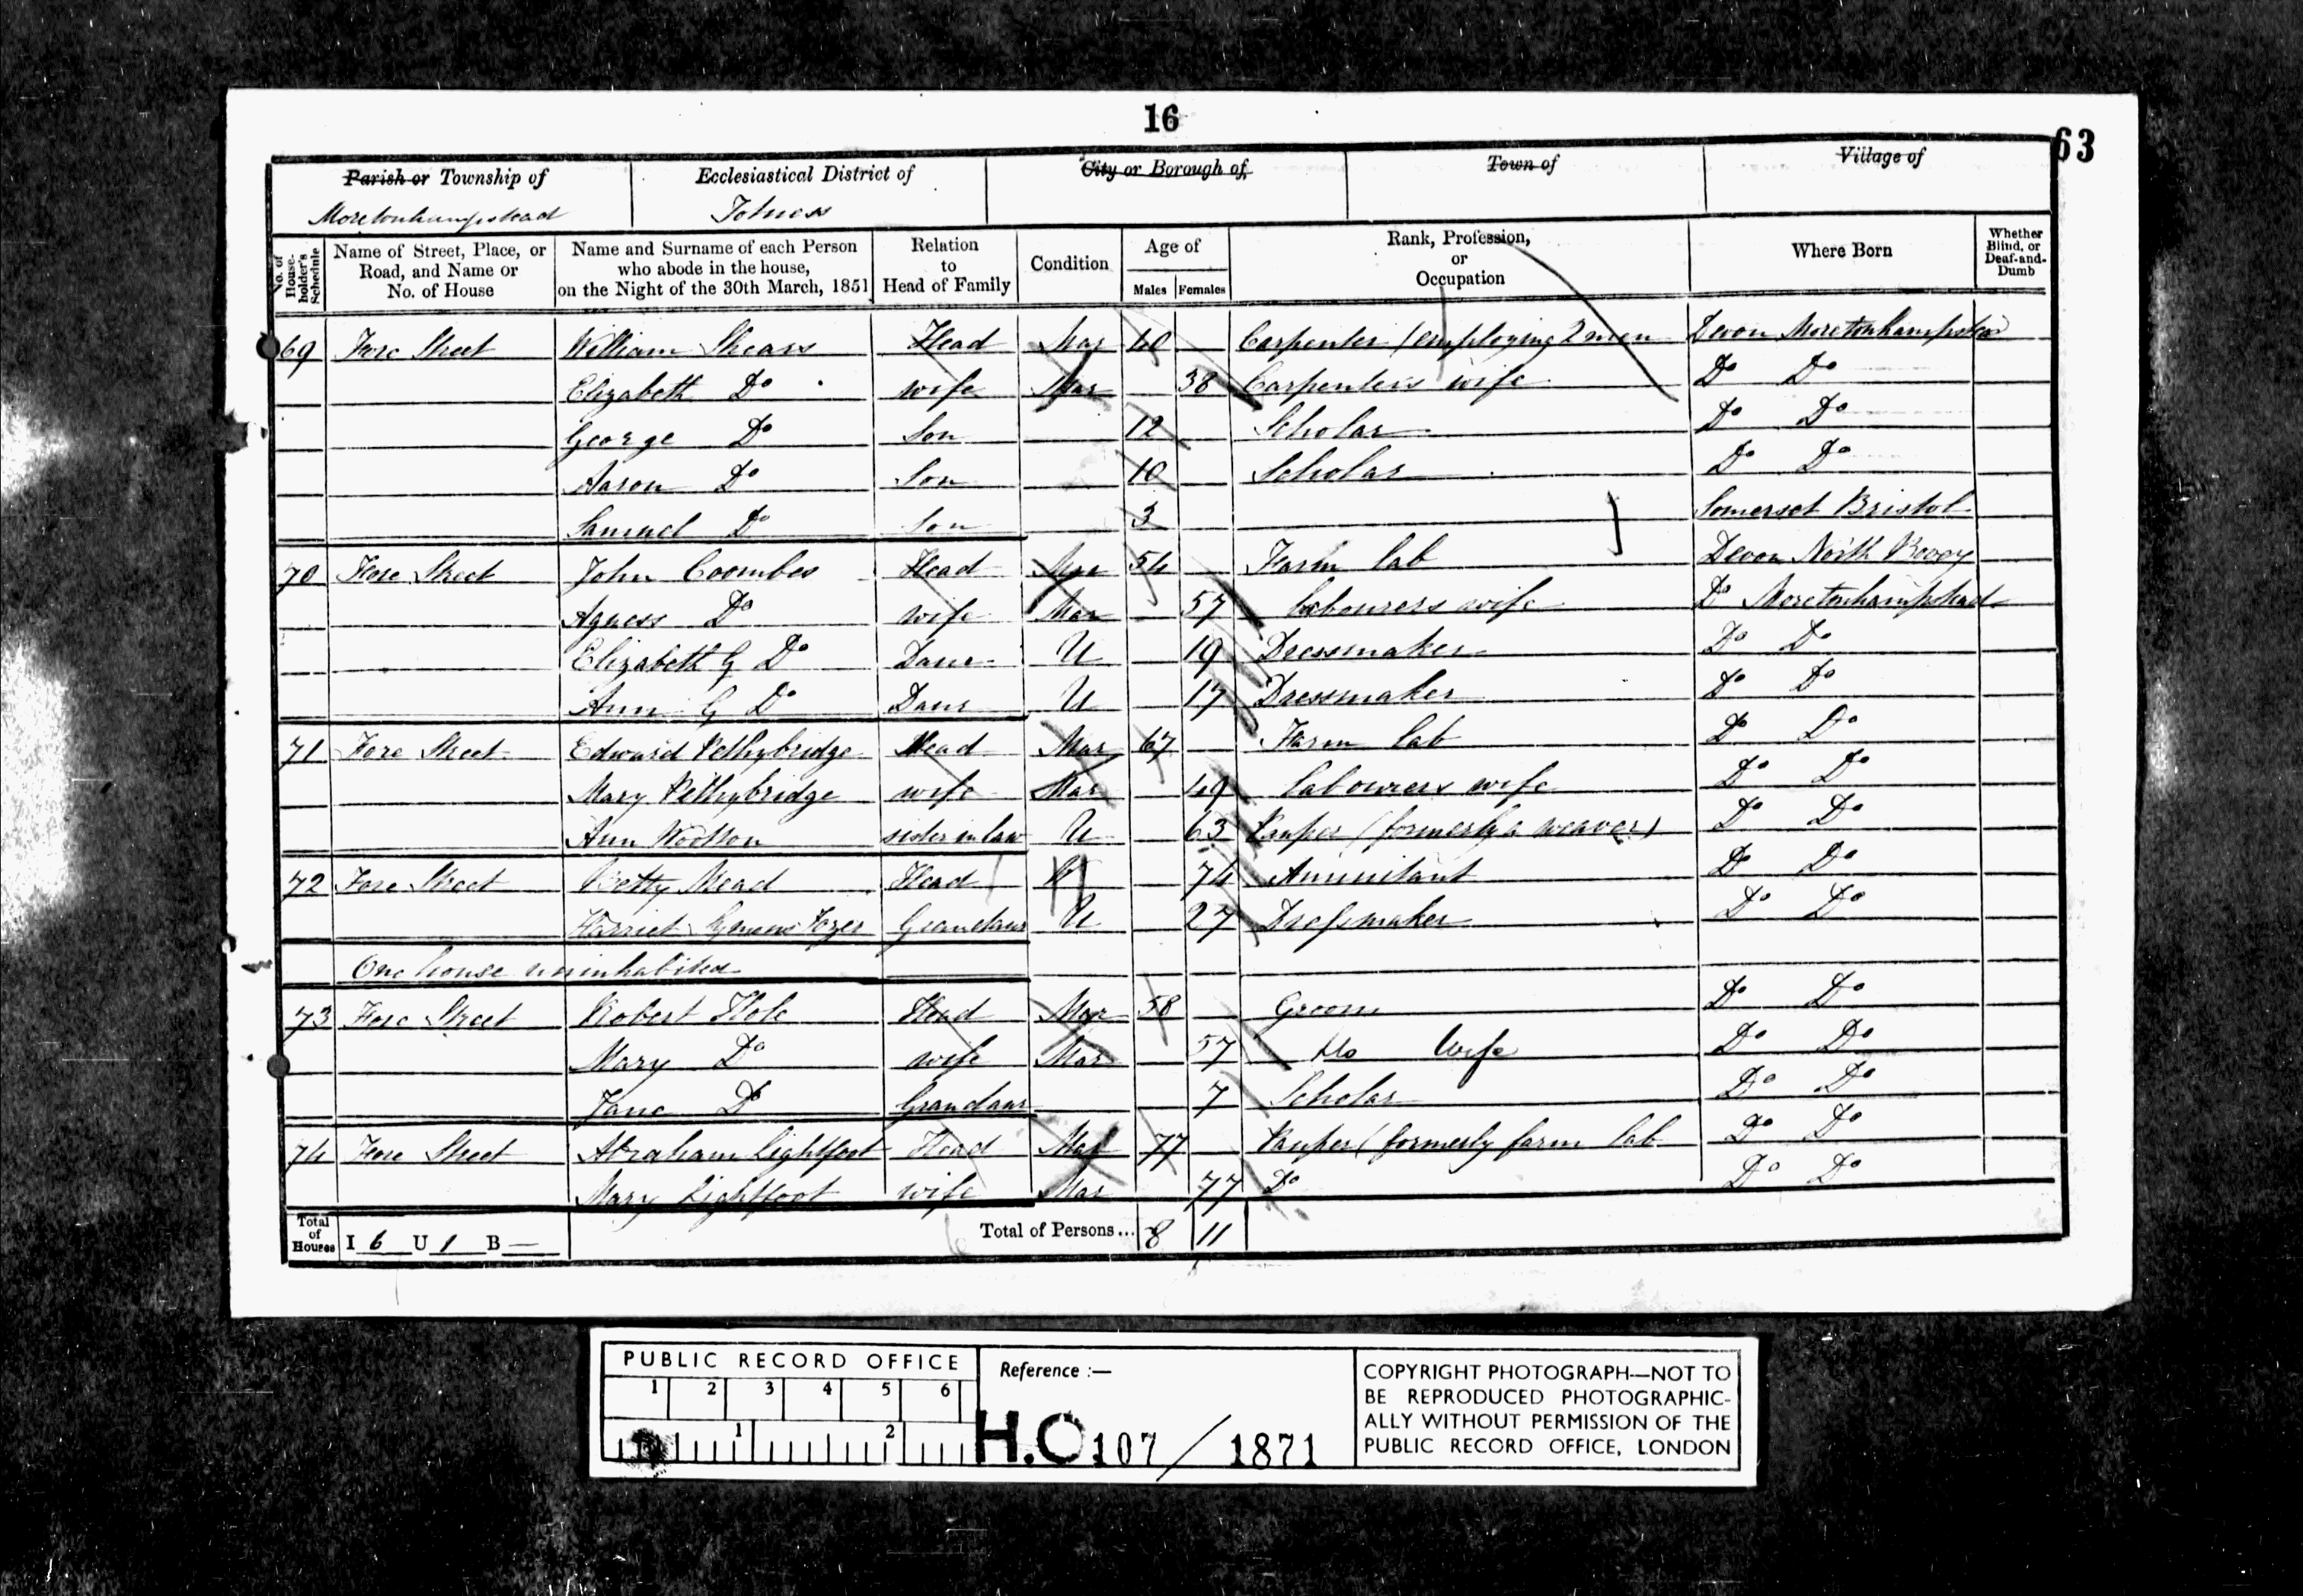 16
63
Parish or Township of
Moretonhampstead
Ecclesiastical District of
Totness
City or Borough of
Town of
Village of
No. of House-holder's Schedule
Name of Street, Place, or Road, and Name or No. of House
Name and Surname of each Person who abode in the house, on the Night of the 30th March, 1851
Relation to Head of Family
Condition
Age of
Males Females
Rank, Profession, or Occupation
Where Born
Whether Blind, or Deaf-and-Dumb
69 Fore Street William Shears Head Mar 40 Carpenter (employing 2 men Devon Moretonhampstead
Elizabeth Do wife Mar 38 Carpenters wife Do Do
George Do Son 12 Scholar Do Do
Aaron Do Son 10 Scholar Do Do
Samuel Do Son 3 Somerset Bristol
70 Fore Street John Coombes Head Mar 54 Farm lab Devon North Bovey
Agness Do wife Mar 57 labourers wife Do Moretonhampstead
Elizabeth G Do Daur U 19 Dressmaker Do Do
Ann G Do Daur U 17 Dressmaker Do Do
71 Fore Street Edward Pethybridge Head Mar 67 Farm lab Do Do
Mary Pethybridge wife Mar 49 labourers wife Do Do
Ann Wotton sister in law U 63 Pauper (formerly a weaver) Do Do
72 Fore Street Betty Mead Head 74 Annuitant Do Do
Harriet Tozer Grandaur U 27 Dressmaker Do Do
One house uninhabited
73 Fore Street Robert Hole Head Mar 58 Groom Do Do
Mary Do wife Mar 57 Do Wife Do Do
Jane Do Grandaur 7 Scholar Do Do
74 Fore Street Abraham Lightfoot Head Mar 77 Pauper (formerly farm lab Do Do
Mary Lightfoot wife Mar 77 Do Do Do
Total of Houses I 6 U 1 B — Total of Persons... 8 11
PUBLIC RECORD OFFICE
1 2 3 4 5 6
1 2
Reference :—
H.O. 107 / 1871
COPYRIGHT PHOTOGRAPH—NOT TO
BE REPRODUCED PHOTOGRAPHIC-
ALLY WITHOUT PERMISSION OF THE
PUBLIC RECORD OFFICE, LONDON